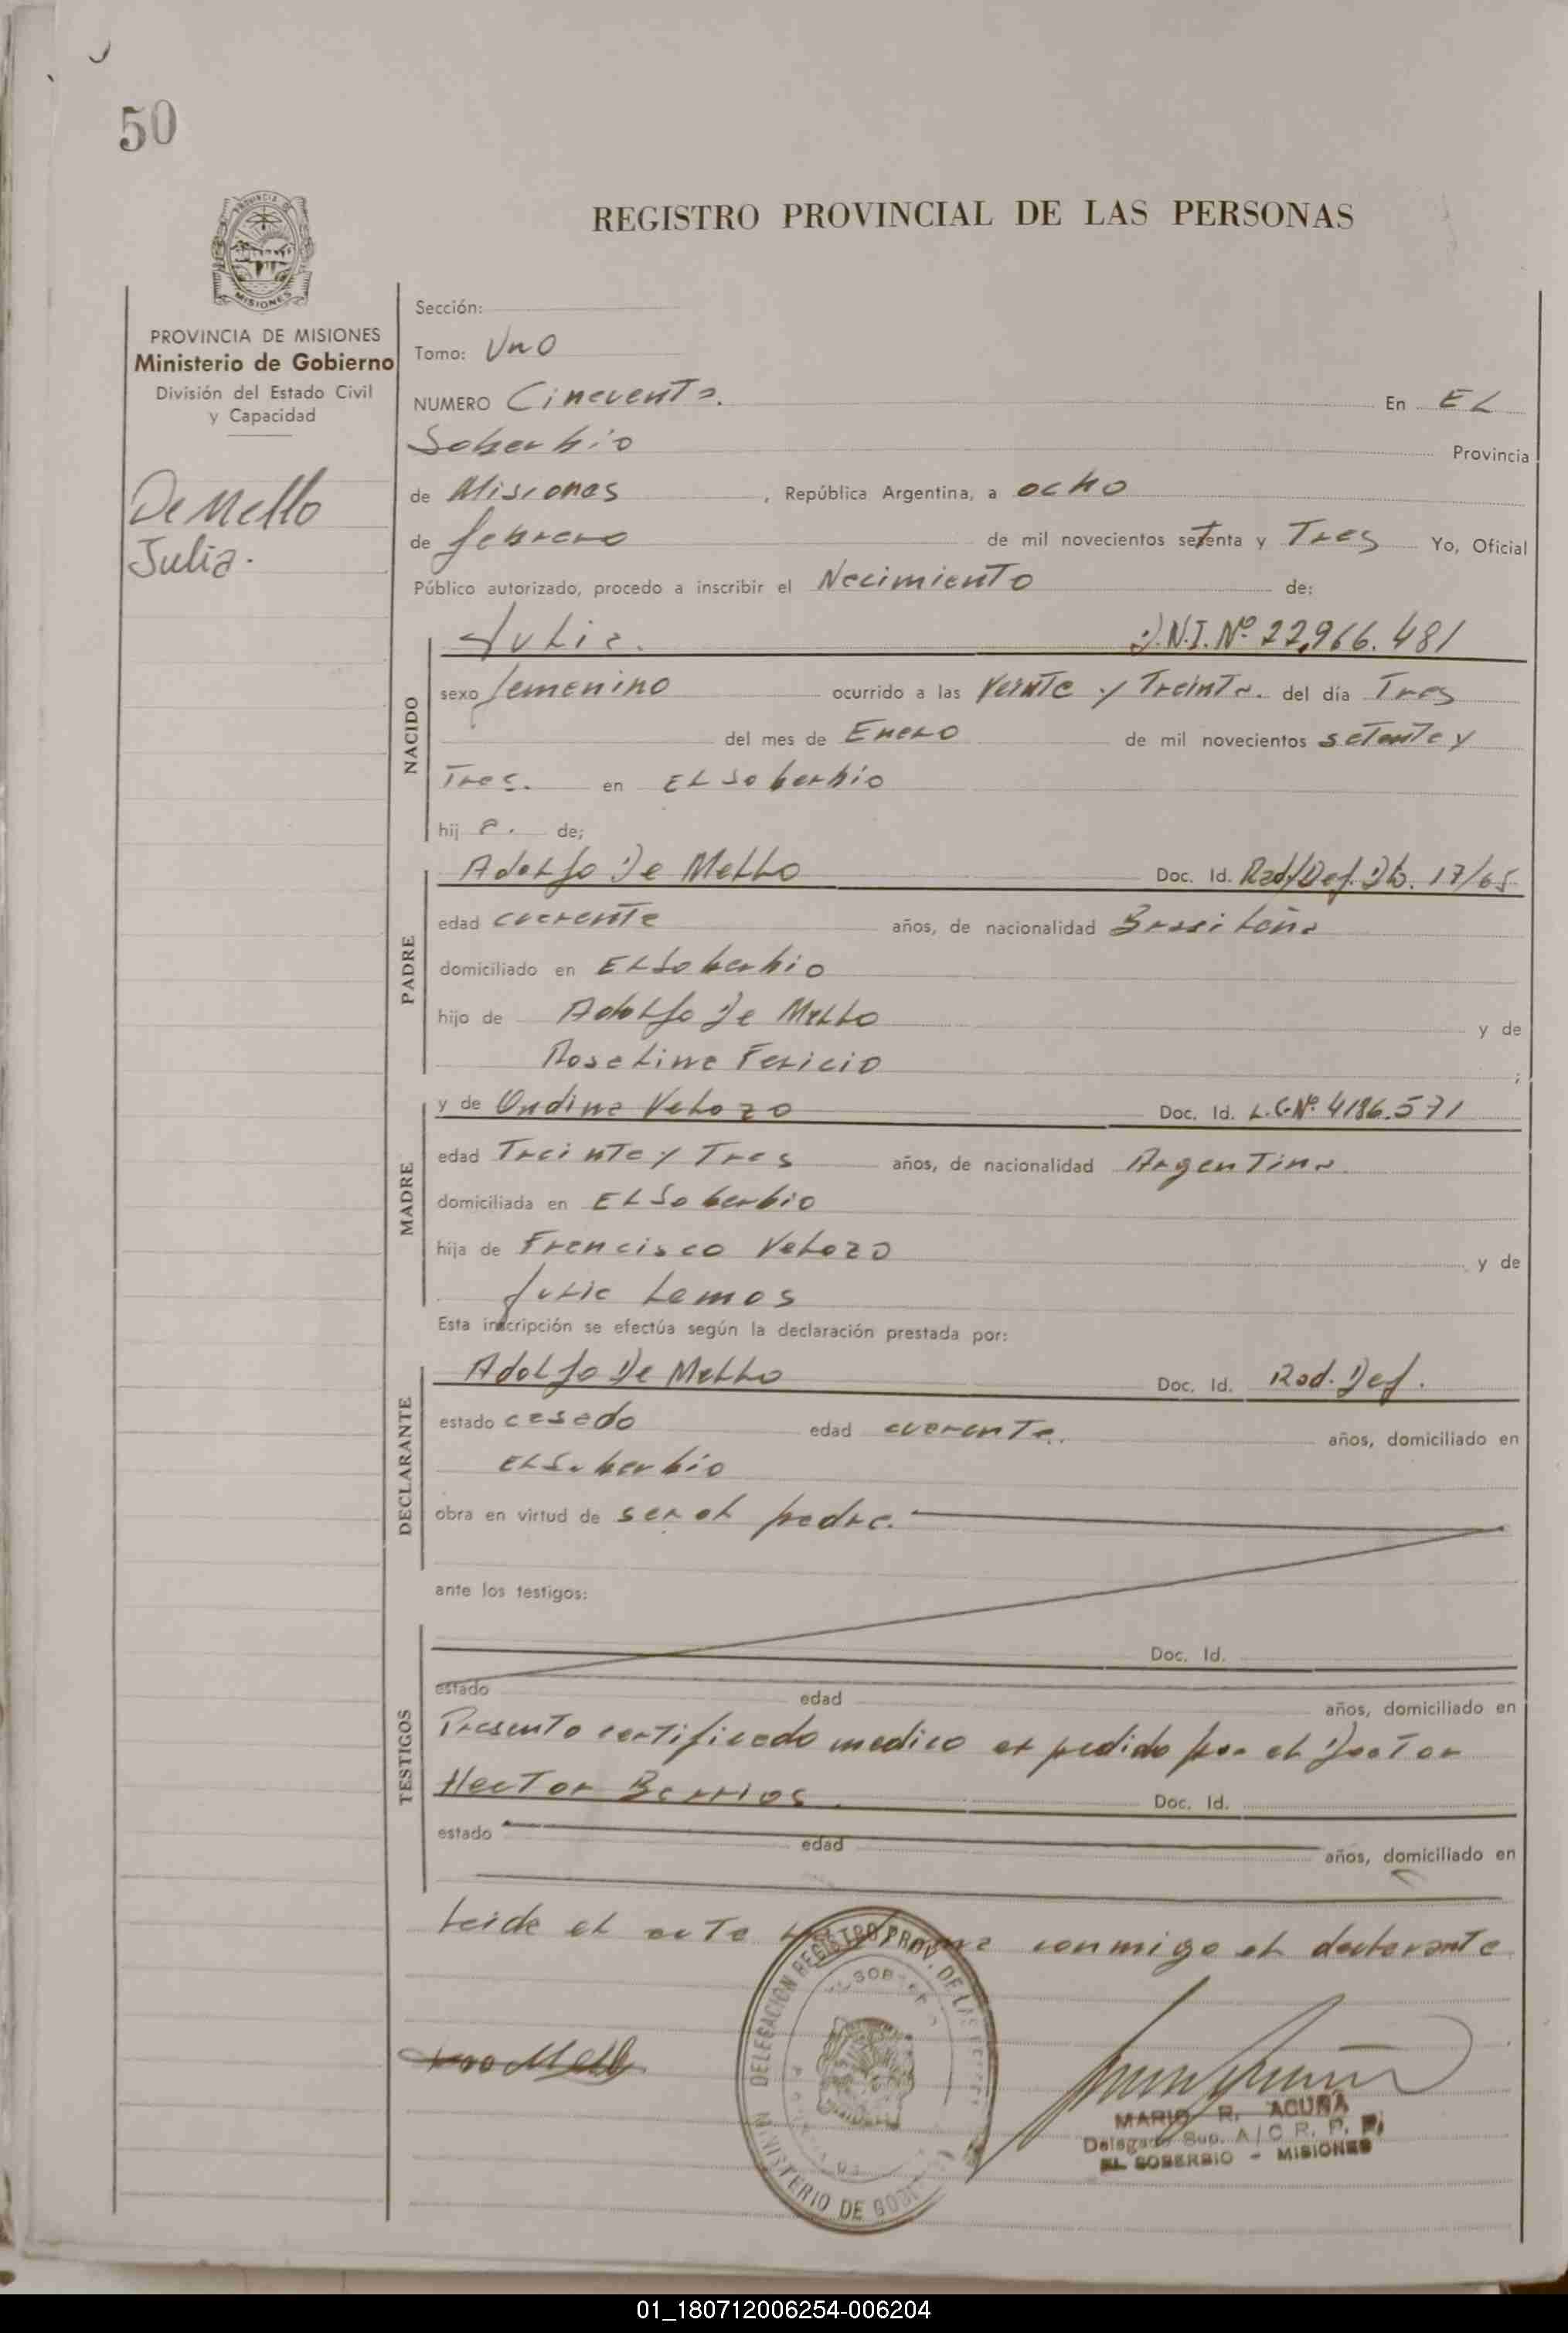 50
PROVINCIA DE
MISIONES
REGISTRO PROVINCIAL DE LAS PERSONAS
PROVINCIA DE MISIONES
Ministerio de Gobierno
División del Estado Civil
y Capacidad
De Mello
Julia.
Sección:
Tomo: Uno
NUMERO Cincuenta. En EL
Soberbio Provincia
de Misiones, República Argentina, a ocho
de febrero de mil novecientos setenta y Tres Yo, Oficial
Público autorizado, procedo a inscribir el Nacimiento de:
NACIDO
Julia. D.N.I. Nº 22.966.481
sexo femenino ocurrido a las veinte y Treinta. del día Tres
del mes de Enero de mil novecientos setenta y
Tres. en EL Soberbio
hij a. de;
PADRE
Adolfo De Mello Doc. Id. Rad/Def. Db. 17/65
edad cuarenta años, de nacionalidad Brasileña
domiciliado en EL Soberbio
hijo de Adolfo De Mello y de
Roselina Fericio ;
MADRE
y de Ondina Velozo Doc. Id. L.C.Nº 4186.571
edad Treinta y Tres años, de nacionalidad Argentina
domiciliada en EL Soberbio
hija de Francisco Velozo y de
Julia Lemos
Esta inscripción se efectúa según la declaración prestada por:
DECLARANTE
Adolfo De Mello Doc. Id. Rad. Def.
estado casado edad cuarenta. años, domiciliado en
EL Soberbio
obra en virtud de ser el padre.
ante los testigos:
TESTIGOS
Doc. Id.
estado edad años, domiciliado en
Presento certificado medico expedido por el Doctor
Hector Barrios. Doc. Id.
estado edad años, domiciliado en
Leida el acta la firma conmigo el declarante
DELEGACION REGISTRO PROV. DE LAS
MINISTERIO DE GOBIERNO
MARIO R. ACUÑA
Delegado Sup. A/C R. P. P.
EL SOBERBIO - MISIONES
01_180712006254-006204